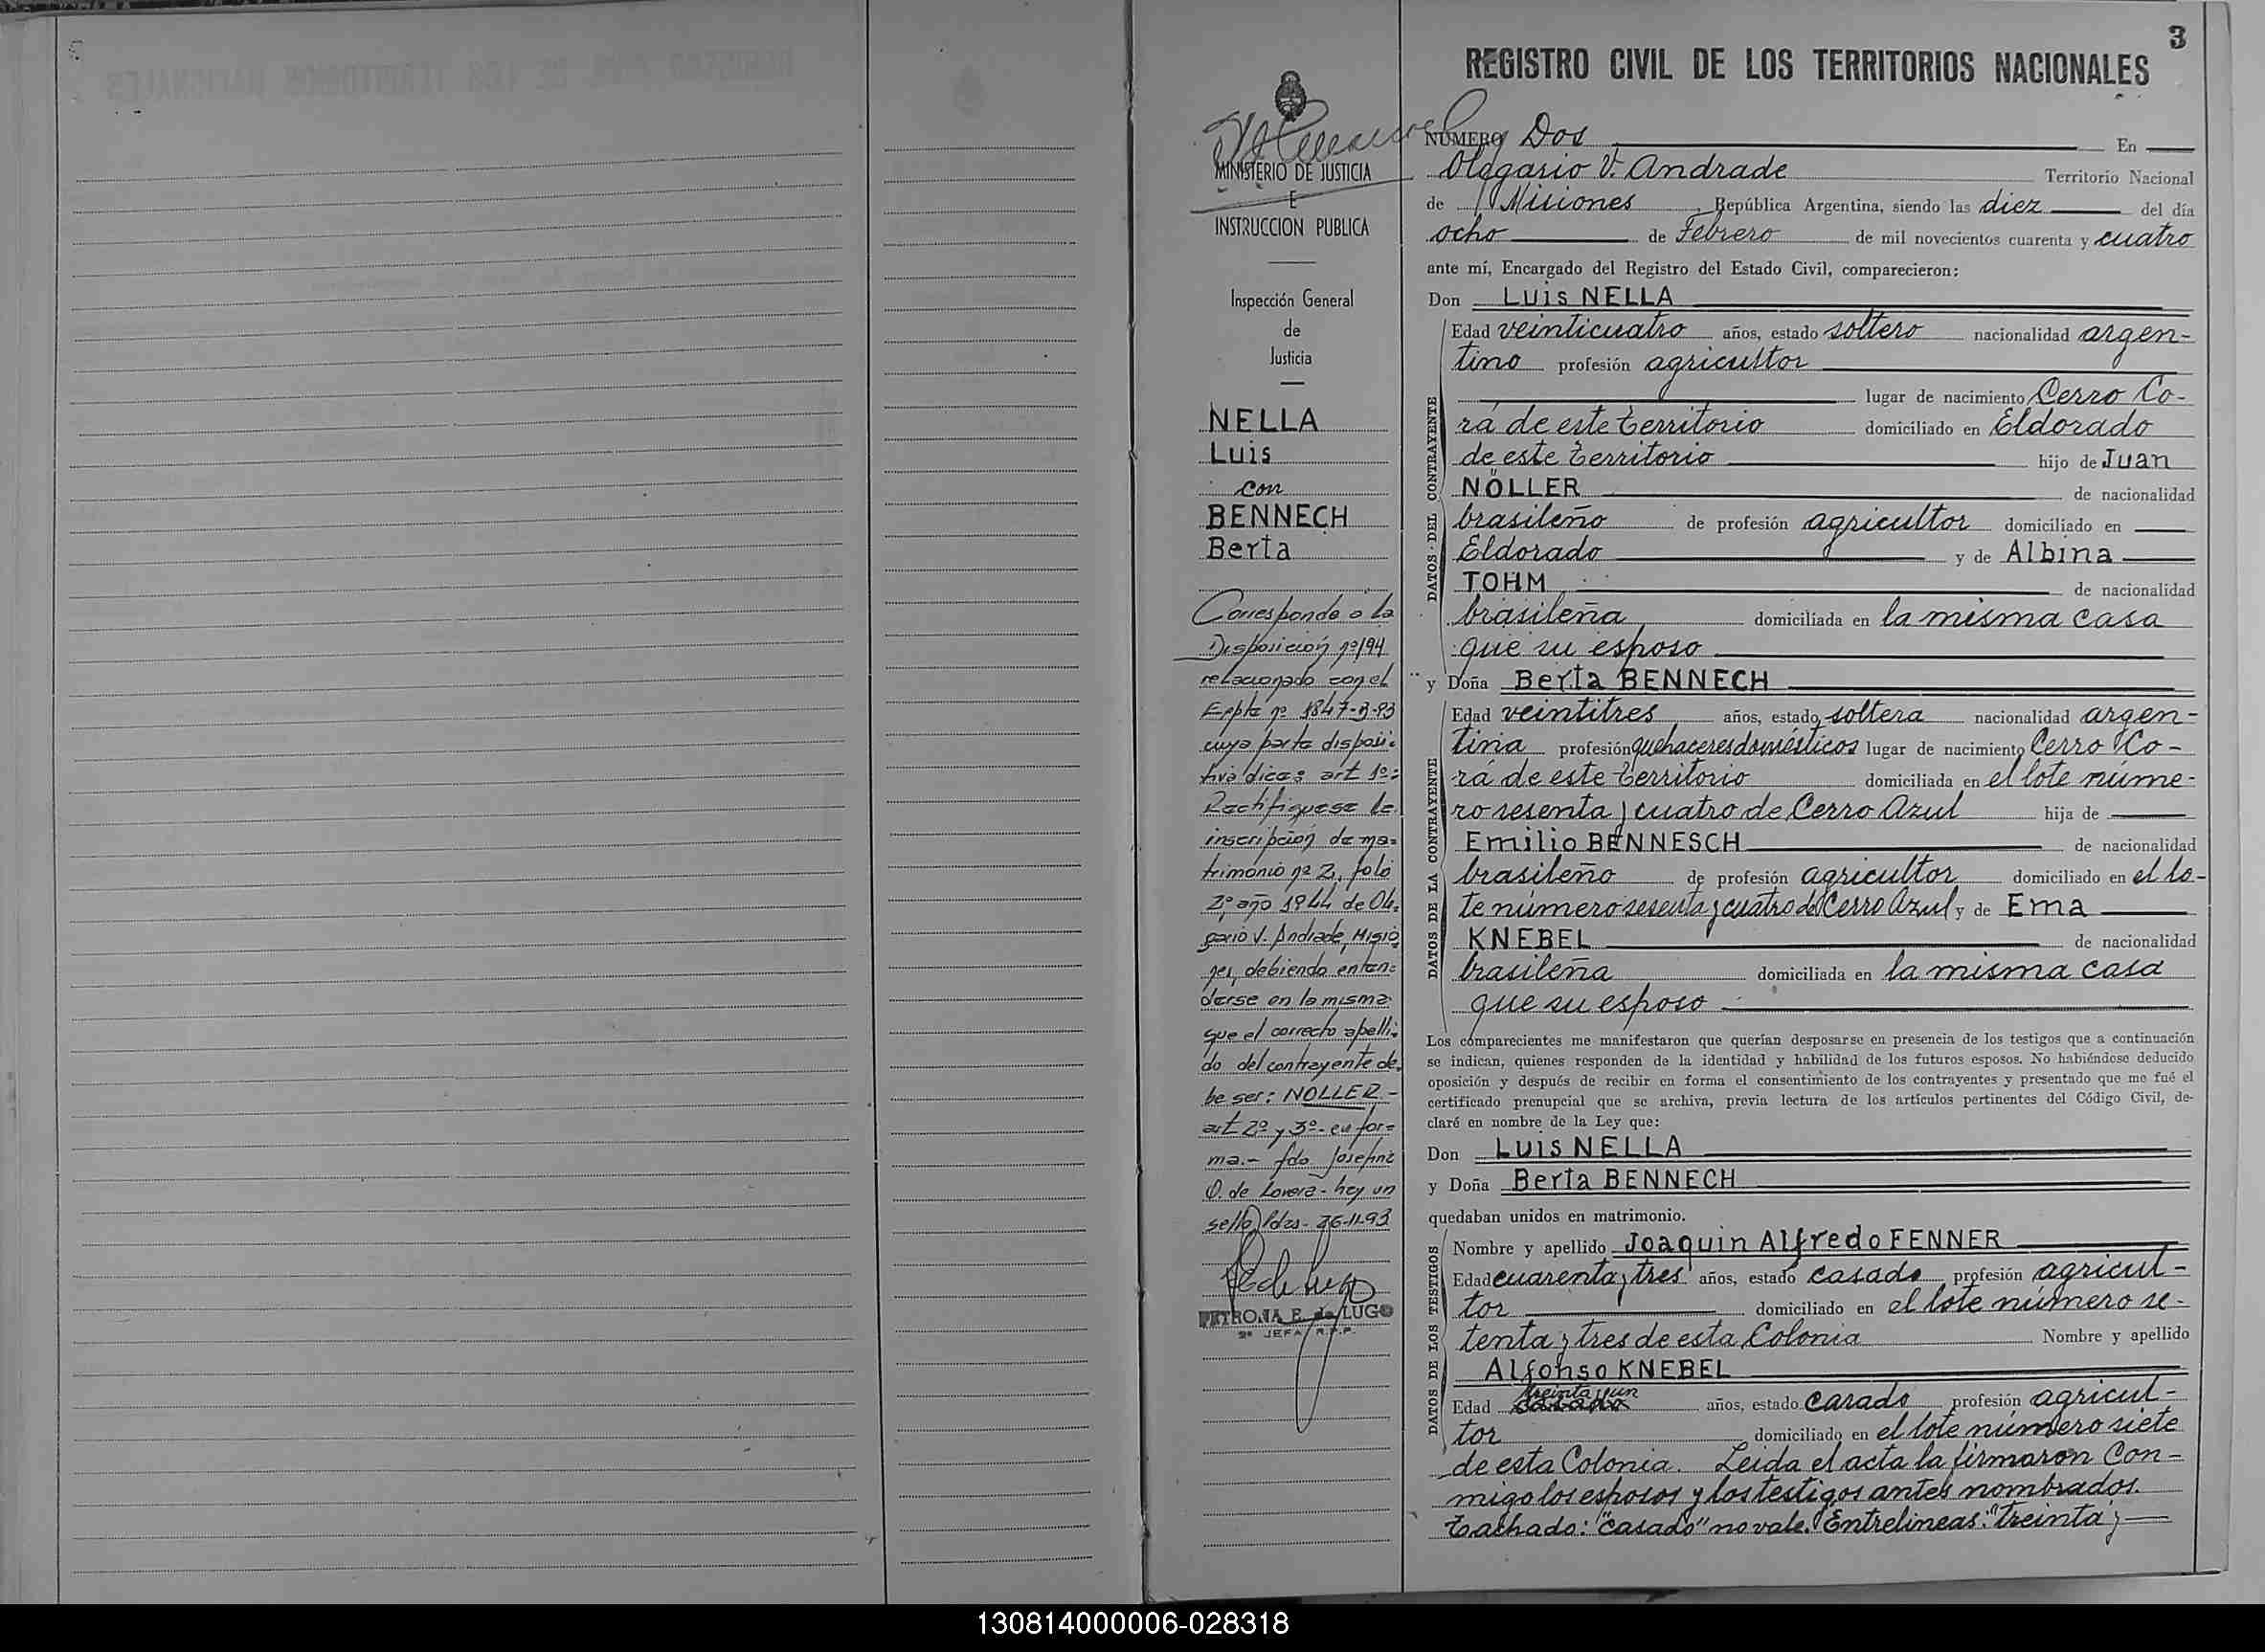 3
REGISTRO CIVIL DE LOS TERRITORIOS NACIONALES
MINISTERIO DE JUSTICIA
E
INSTRUCCION PUBLICA
Inspección General
de
Justicia
NELLA
Luis
con
BENNECH
Berta
Corresponde a la
Disposición nº 194
relacionado con el
Expte nº 1847-B-93
cuya parte disposi-
tiva dice: art 1º:
Rectifiquese la
inscripción de ma-
trimonio nº 2, folio
2º año 1944 de Ole-
gario V. Andrade, Misio
nes, debiendo enten-
derse en la misma
que el correcto apelli-
do del contrayente de-
be ser: NOLLER.-
art 2º y 3º- en for-
ma.- fdo Josefina
O. de Lovera - hay un
sello Pdas- 26-11-93
PETRONA E. de LUGO
2º JEFA R.P.P.
NÚMERO Dos En
Olegario V. Andrade Territorio Nacional
de Misiones, República Argentina, siendo las diez del día
ocho de Febrero de mil novecientos cuarenta y cuatro
ante mí, Encargado del Registro del Estado Civil, comparecieron:
Don Luis NELLA
DATOS DEL CONTRAYENTE
Edad veinticuatro años, estado soltero nacionalidad argen-
tino profesión agricultor
lugar de nacimiento Cerro Co-
rá de este territorio domiciliado en Eldorado
de este territorio hijo de Juan
NÖLLER de nacionalidad
brasileño de profesión agricultor domiciliado en
Eldorado y de Albina
TOHM de nacionalidad
brasileña domiciliada en la misma casa
que su esposo
y Doña Berta BENNECH
DATOS DE LA CONTRAYENTE
Edad veintitres años, estado soltera nacionalidad argen-
tina profesión quehaceres domésticos lugar de nacimiento Cerro Co-
rá de este territorio domiciliada en el lote núme-
ro sesenta y cuatro de Cerro Azul hija de
Emilio BENNESCH de nacionalidad
brasileño de profesión agricultor domiciliado en el lo-
te número sesenta y cuatro de Cerro Azul y de Ema
KNEBEL de nacionalidad
brasileña domiciliada en la misma casa
que su esposo
Los comparecientes me manifestaron que querían desposarse en presencia de los testigos que a continuación
se indican, quienes responden de la identidad y habilidad de los futuros esposos. No habiéndose deducido
oposición y después de recibir en forma el consentimiento de los contrayentes y presentado que me fué el
certificado prenupcial que se archiva, previa lectura de los artículos pertinentes del Código Civil, de-
claré en nombre de la Ley que:
Don Luis NELLA
y Doña Berta BENNECH
quedaban unidos en matrimonio.
DATOS DE LOS TESTIGOS
Nombre y apellido Joaquin Alfredo FENNER
Edad cuarenta y tres años, estado casado profesión agricul-
tor domiciliado en el lote número se-
tenta y tres de esta Colonia Nombre y apellido
Alfonso KNEBEL
treinta y un
Edad casado años, estado casado profesión agricul-
tor domiciliado en el lote número siete
de esta Colonia. Leida el acta la firmaron con-
migo los esposos y los testigos antes nombrados.
Tachado: "casado" no vale. Entrelineas: "treinta y
130814000006-028318